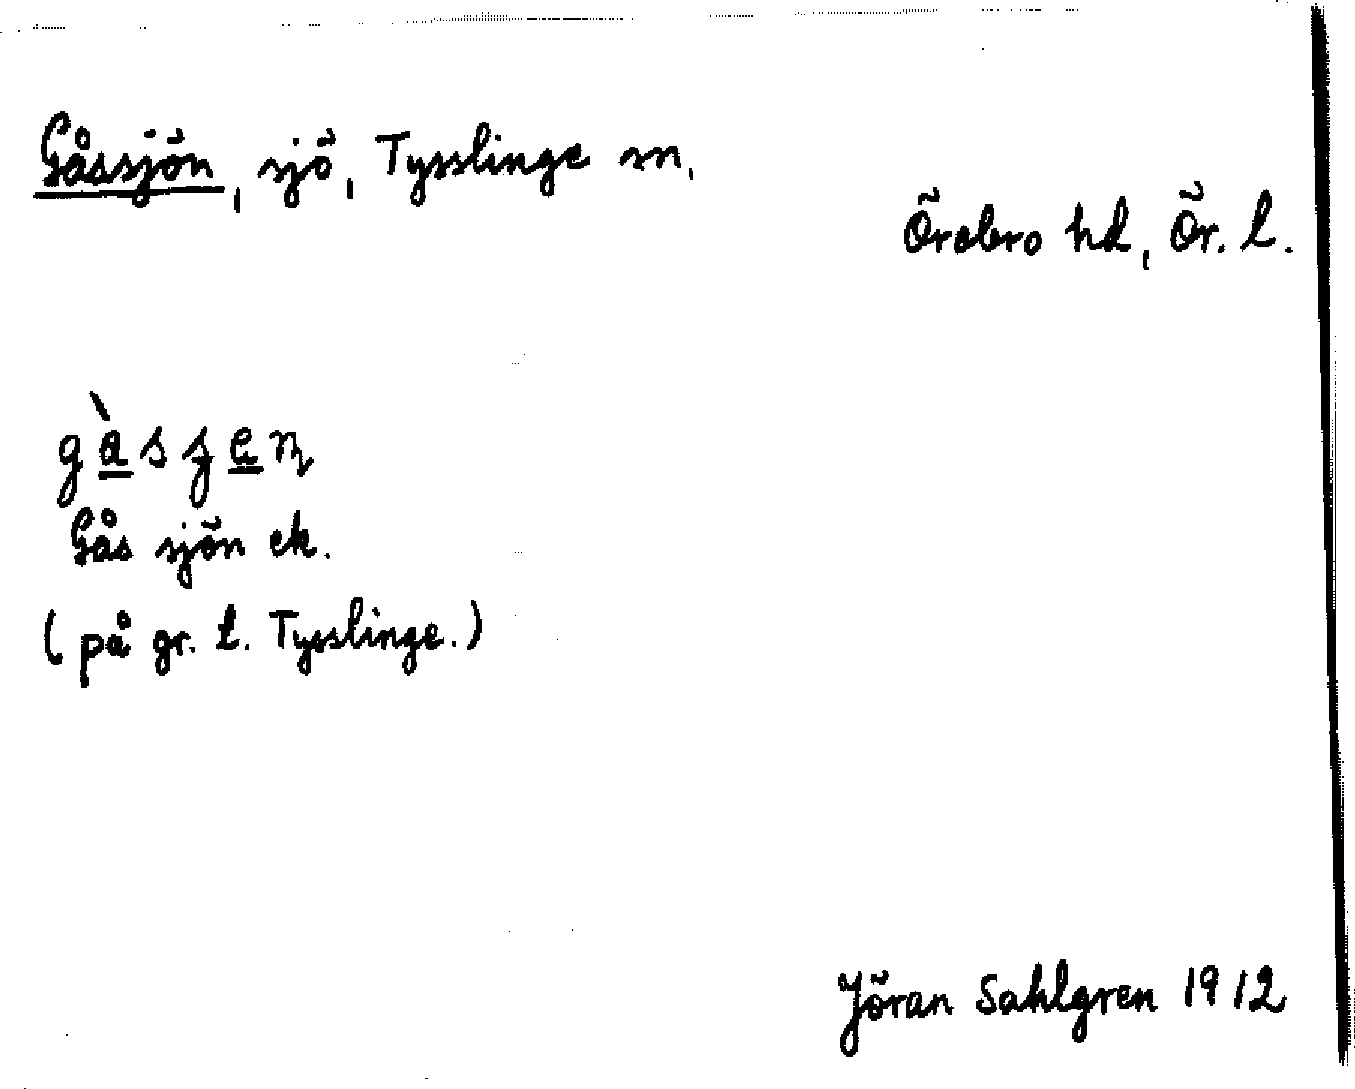 Gåssjön, sjö, Tysslinge sn,
Örebro hd, Ör. l.
Gås sjön ek.
(på gr. t. Tysslinge.)
Jöran Sahlgren 1912